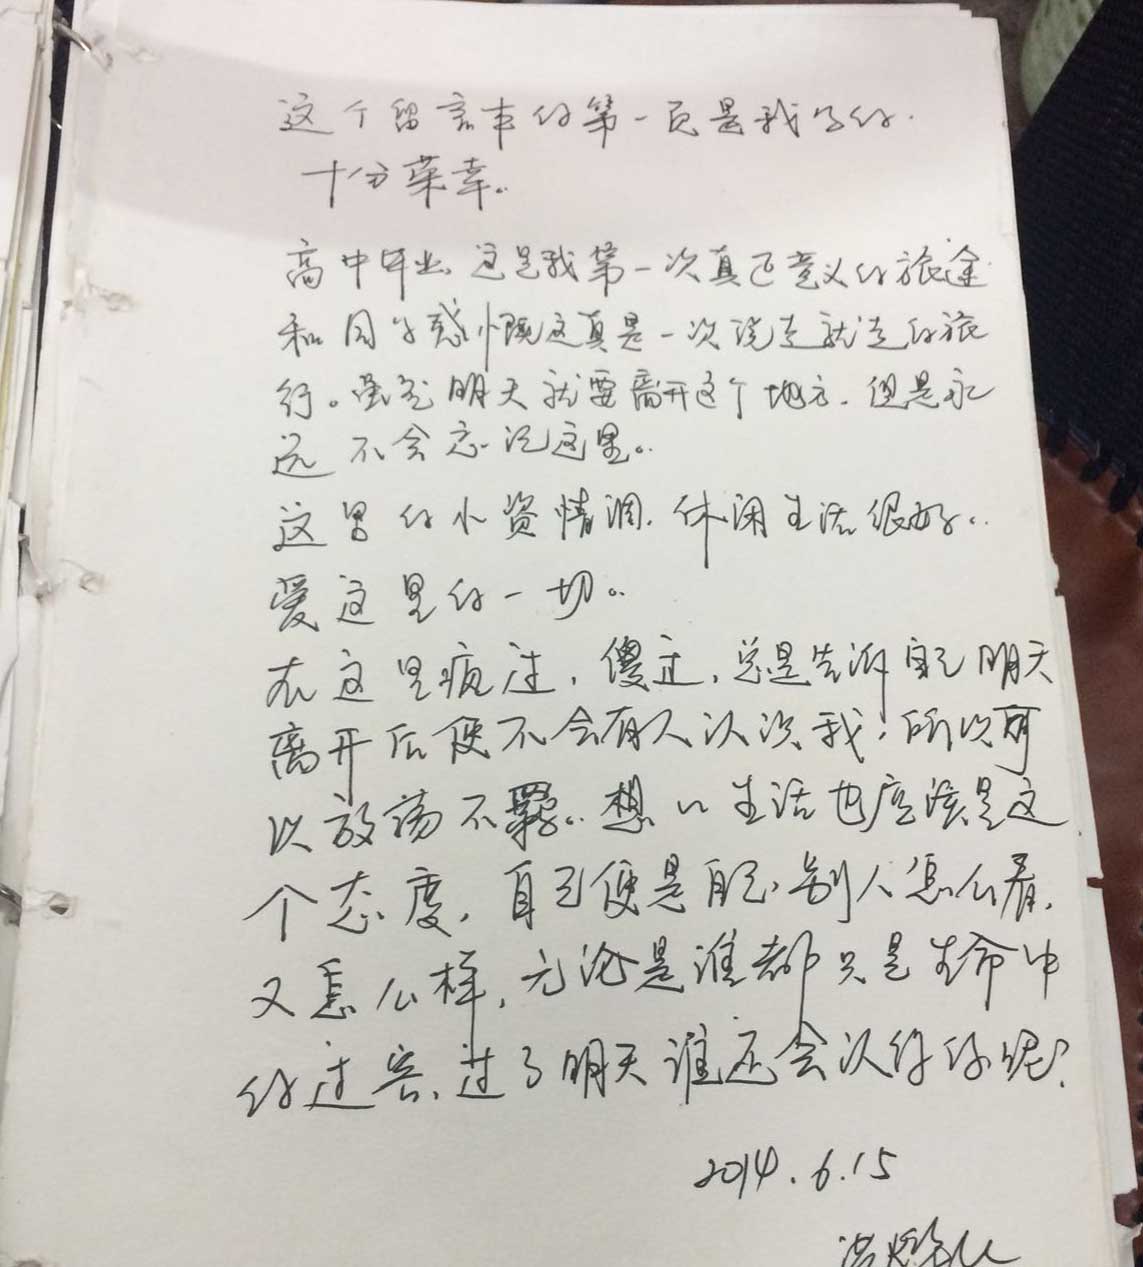 这个留言本的第一页是我写的.
十分荣幸。
高中毕业,这是我第一次真正意义的旅途
和同学感慨这真是一次说走就走的旅
行。虽然明天就要离开这个地方.但是永
远不会忘记这里。
这里的小资情调.休闲生活很好。
爱这里的一切。
在这里疯过,傻过,总是告诉自己明天
离开后便不会有人认识我,所以可
以放荡不羁。想以生活也应该是这
个态度,自己便是自己,别人怎么看,
又怎么样,无论是谁都只是生命中
的过客,过了明天谁还会认得你呢?
2014.6.15